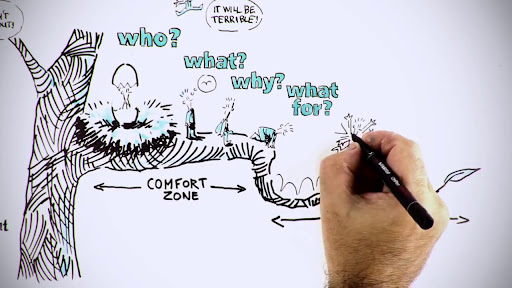 IT WILL BE
TERRIBLE!
who?
what?
why?
what
for?
COMFORT
ZONE